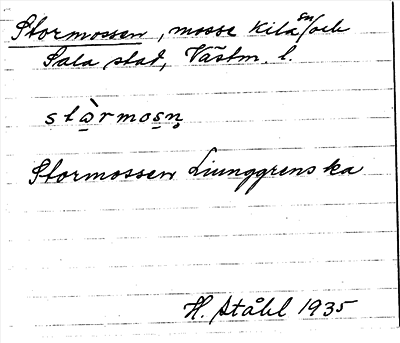 Stormossen, mosse Kila Sn/och
Sala stad, Västm. l.
stòrmosn̥
Stormossen Liunggrens ka
H. Ståhl 1935